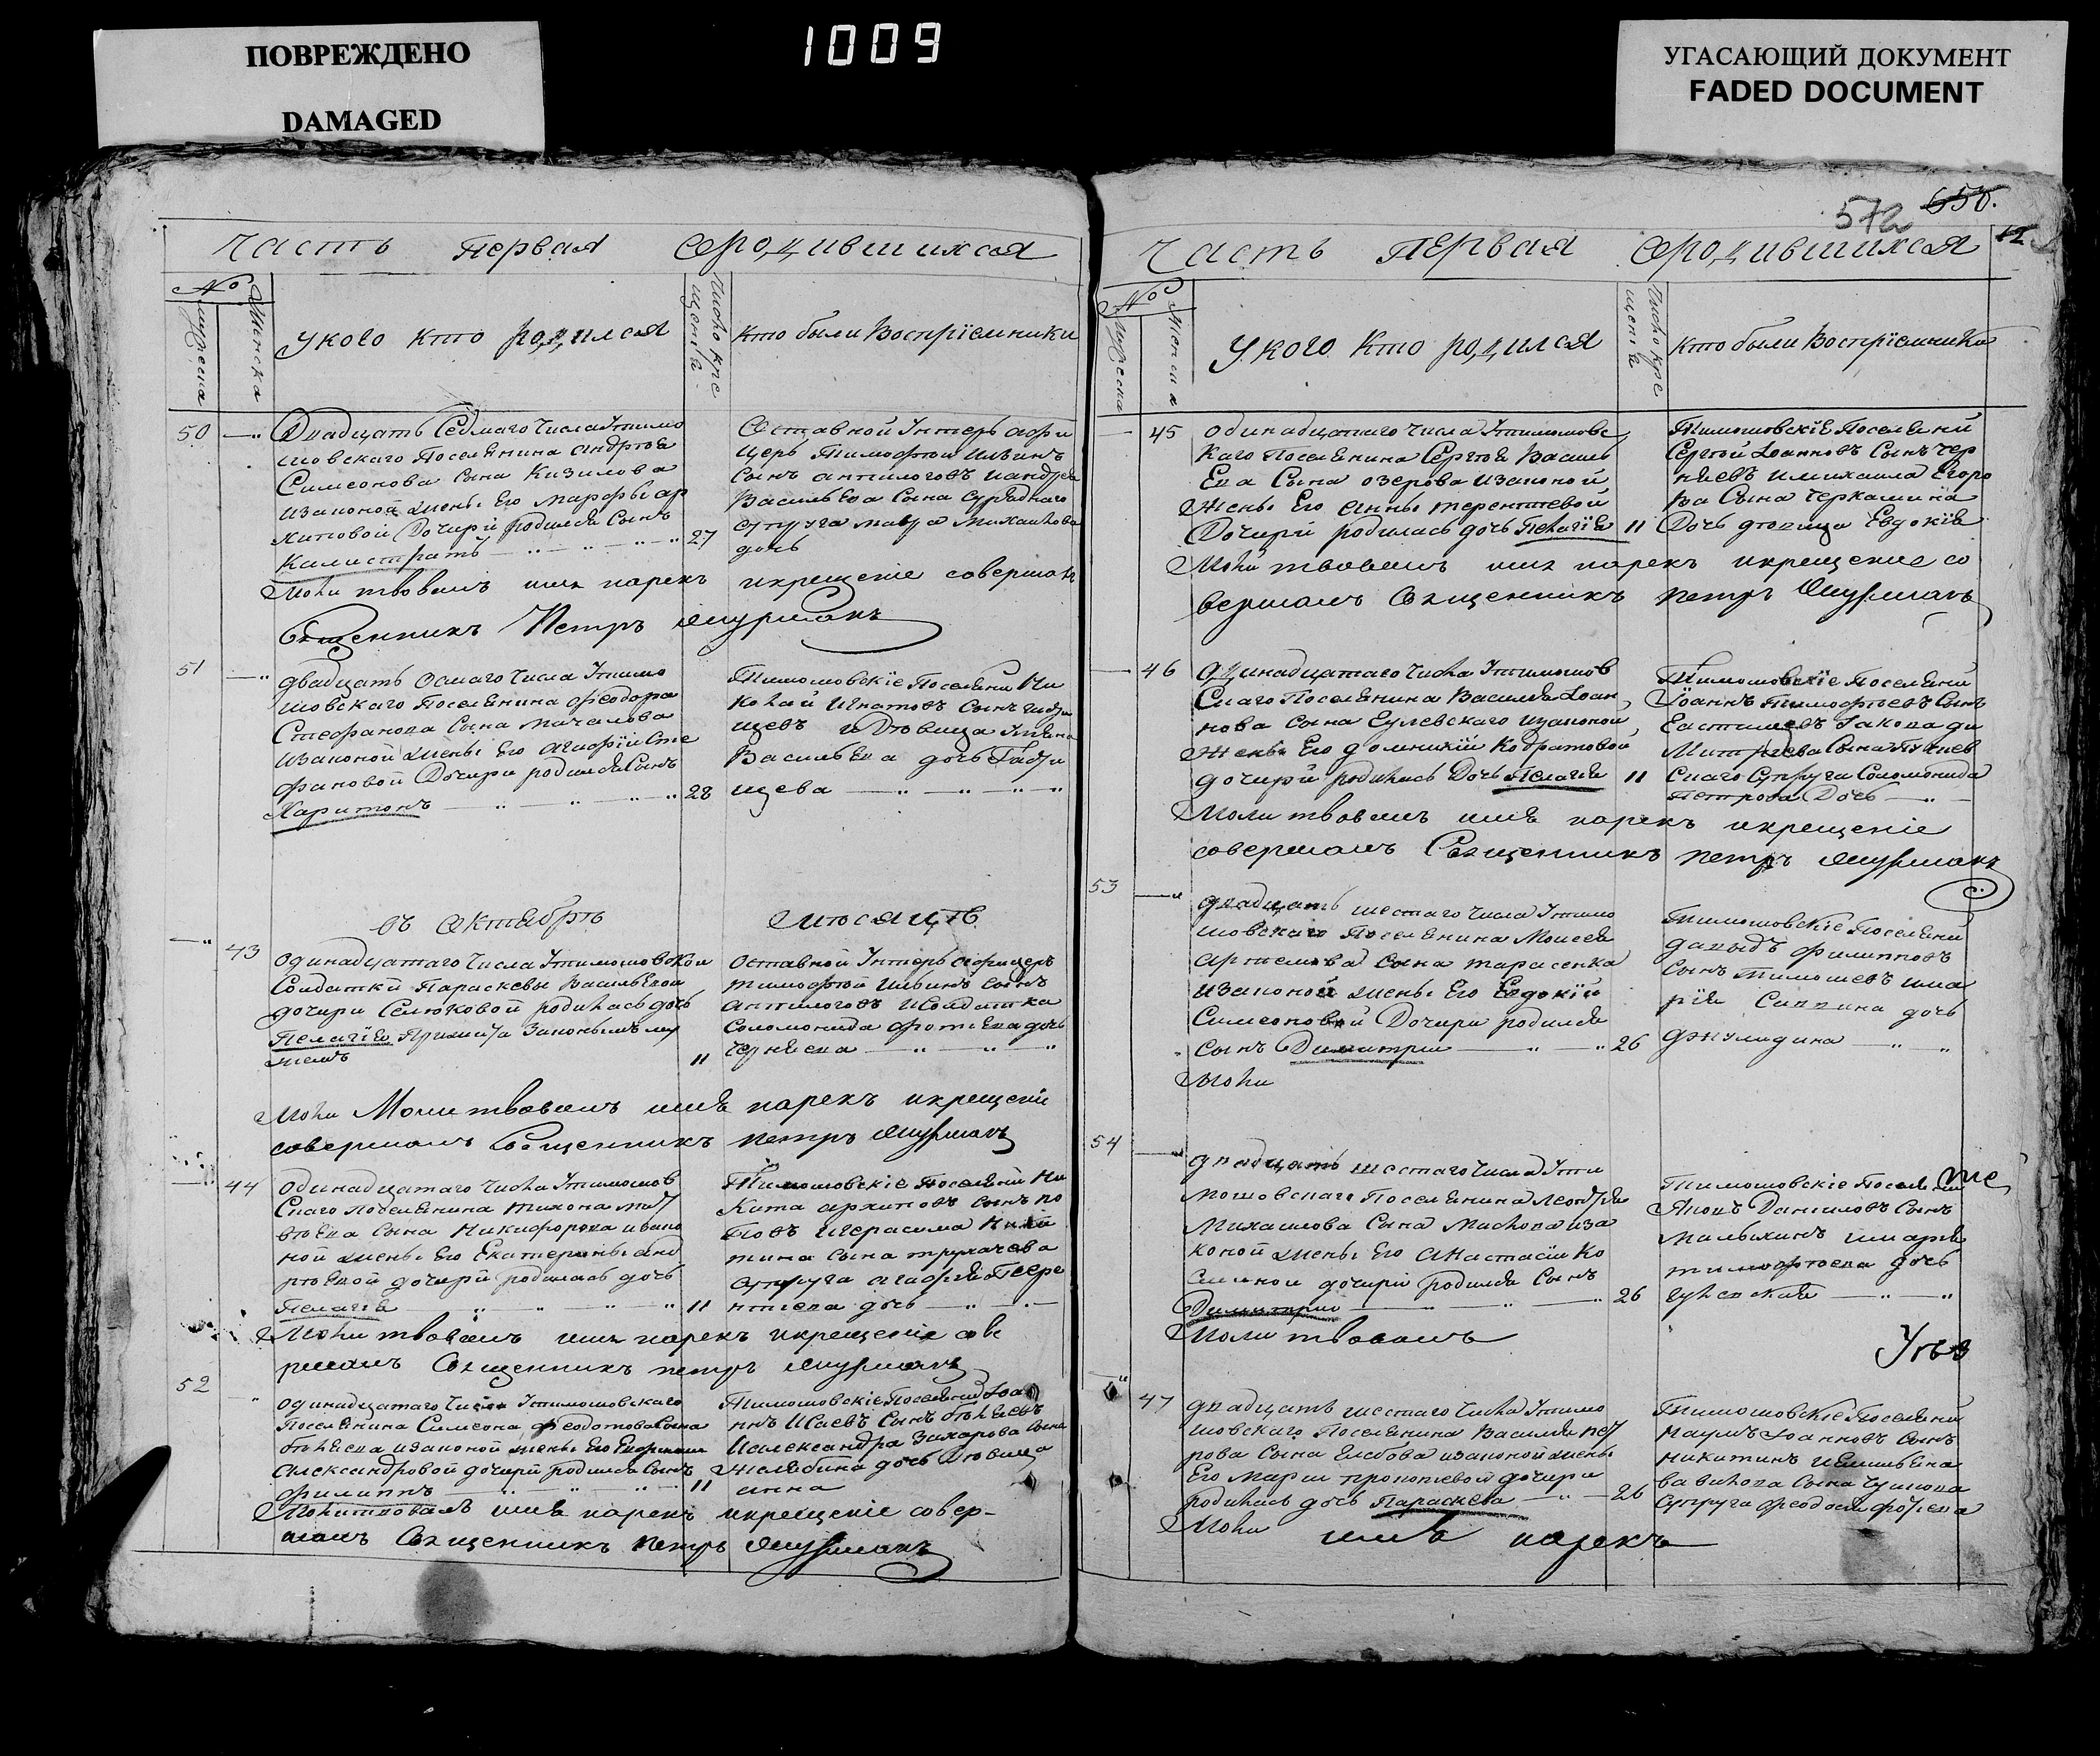 ПОВРЕЖДЕНО
DAMAGED
1009
УГАСАЮЩИЙ ДОКУМЕНТ
FADED DOCUMENT
Часть Первая Ородившихся
№
мужеска
Женска
Укого кто родился
Число кре
щенія
кто были Воспріемники
50
Двадцать Седмаго Числа Утимо
шовскаго Поселянина Андрея
Симеонова Сына Кизилова
изаконой жены Его Марфы ар
хиповой Дочери родился Сынъ
Калистратъ
27
Оставной Унтеръ Офи
церъ Тимофей Ильинъ
Сынъ антилоговъ иандрея
Васильева Сына
супруга мавра Михайлова
дочь
Моли твовалъ имя нарекъ икрещеніе совершалъ
Священникъ Петръ
51
двадцать Осмаго Числа Утимо
шовскаго Поселянина Феодора
Стефанова Сына Мачалова
изаконой жены Его Агафіи Сте
фановой Дочери родился Сынъ
Харитонъ
28
Тимошовскіе Поселяни Ни
колай Игнатовъ Сынъ
щевъ и Девица
Васильева дочь
щева
въ Октябрѣ Мѣсяцѣ
43
одинадцатаго Числа Утимошовской
Солдатки Параскевы Васильевой
дочери Селюковой родилась дочь
Пелагія Прижита Законымъ му
жемъ
11
Оставной Унтеръ Офицеръ
тимофей Ильинъ Сынъ
антилоговъ иСолдатка
Соломонида Фотиева дочь
Черняева
Моли Молитвовалъ имя нарекъ икрещеніе
совершалъ Священникъ петръ
44
Одинадцатаго Числа Утимошов
Скаго поселянина тихона мат
веева Сына Никифорова изако
ной жены Его Екатерины анд
реевой дочери родилась дочь
Пелагія
11
Тимошовскіе Поселяни Ни
кита архиповъ Сынъ по
повъ игерасима Ники
тина Сына трухачева
супруга агафія Тере
нтиева дочь
Моли твовалъ имя нарекъ икрещеніе сове
ршалъ Священникъ петръ
52
одинадцатаго Числа Утимошовскаго
Поселянина Симеона Феодотова Сына
белѣева изаконой жены Его Евфимии
Александровой дочери родился Сынъ
филиппъ
11
Тимошовскіе Поселяни Іоа
ннъ Исаевъ Сынъ белѣевъ
иалександра Захарова Сына
Желябина дочь Девица
анна
Молитвовалъ имя нарекъ икрещеніе совер-
шалъ Священникъ петръ
572
658.
12
Часть первая Ородившихся
№
мужеска
Женска
Укого Кто родился
Число кре
щенія
Кто были Воспріемники
45
одинадцатаго числа Утимошовс
каго Поселянина Сергея Василь
Ева Сына озерова изаконой
Жены Его Анны терентиевой
Дочери родилась дочь Пелагія
11
Тимошовскіе Поселяни
Сергей Іоанновъ Сынъ Чер
няевъ имихаила Егоро
ва Сына Черкашина
Дочь девица Евдокія
Моли твовалъ имя нарекъ икрещение со
вершалъ Священникъ петръ
46
Одинадцатаго Числа Утимошов
Скаго Поселянина Василія Іоан
нова Сына Гулевскаго изаконой
Жены Его домникіи Кодратовой
дочери родилась Дочь Пелагія
11
Тимошовскіе Поселяни
Іоаннъ Тимофеевъ Сынъ
Евстишевъ Іакова ди
митриева Сына
Скаго Супруга Соломонида
Петрова Дочь
Моли твовалъ имя нарекъ икрещеніе
совершалъ Священникъ петръ
53
двадцать шестаго Числа Утимо
шовскаго Поселянина Моисея
Артемова Сына тарасенка
изаконой жены Его Евдокіи
Симеоновой Дочери родился
Сынъ Димитрии
26
Тимошовскіе Поселяни
давыдъ филиповъ
Сынъ тимошевъ има
рія Саввина дочь
Джулидина
Моли
54
двадцать шестаго Числа Ути
мошовскаго Поселянина Леонтия
Михаилова Сына Маслова иза
коной жены Его Анастасіи Ко
зминой дочери родился Сынъ
Димитрии
26
Тимошовскіе Поселяни
Яковъ Даниловъ Сынъ
Малыхинъ имарья
тимофеева дочь
гулевская
Моли твовалъ
47
двадцать шестаго Числа Утимо
шовскаго Поселянина Василія пет
рова Сына Глебова изаконой жены
Его Марии прокопиевой дочери
родилась дочь Параскева
26
Тимошовскіе Поселяни
Наумъ Іоанновъ Сынъ
никитинъ иЕмильяна
вавилова Сына Чунова
Супруга Феодосия фотиева
Моли имя нарекъ